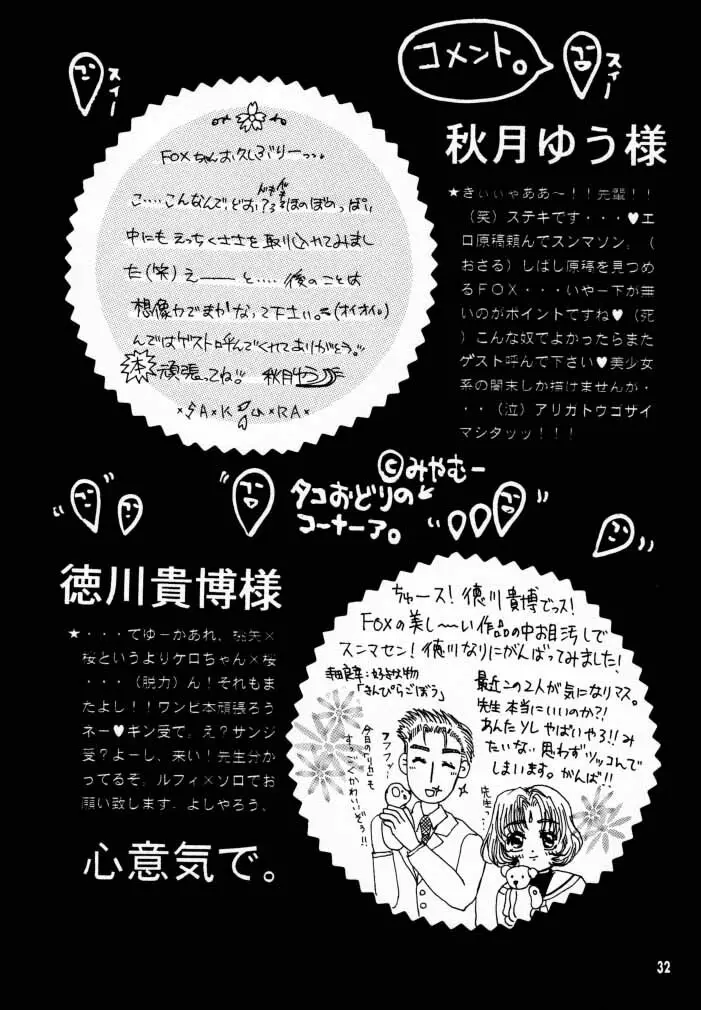 コメント。
スイー
スイー
秋月ゆう様
FOXちゃんお久しぶりーっ。
こ…こんなんで、どお?ほのぼのめっぱい
中にもえっちくささを取り入れてみまし
た(笑)えーーと…後のことは
想像力でまかなって下さい。(オイオイ。)
んではゲスト呼んでくれてありがとう。
本頑張ってね。秋月ゆう
×SAKURA×
★きぃぃゃああ~!!先輩!!
(笑)ステキです・・・♥エ
ロ原稿頼んでスンマソン。(
おさる)しばし原稿を見つめ
るFOX・・・いやー下が無
いのがポイントですね♥(死
)こんな奴でよかったらまた
ゲスト呼んで下さい♥美少女
系の闇末しか描けませんが・
・・(泣)アリガトウゴザイ
マシタッッ!!!
©みやむー
タコおどりの
コーナーア。
徳川貴博様
★・・・てゆーかあれ、桃矢×
桜というよりケロちゃん×桜
・・・(脱力)ん!それもま
たよし!!ワンピ本頑張ろう
ネー♥キン受て。え?サンジ
受?よーし、来い!先生分か
ってるぞ。ルフィ×ゾロでお
願い致します。よしやろう、
心意気で。
ちゅース!徳川貴博でっス!
FOXの美し〜い作品の中お目汚しで
スンマセン!徳川なりにがんばってみました!
寺田良幸:好きな物
「きんぴらごぼう」
最近この2人が気になりマス。
先生本当にいいのか?!
あんたソレやばいやろ!!み
たいな、思わずツッコんで
しまいます。がんば!!
フフフッ…
今日の「リカ」も
すっごくかわいいぞぅ!!
先生っ…
32